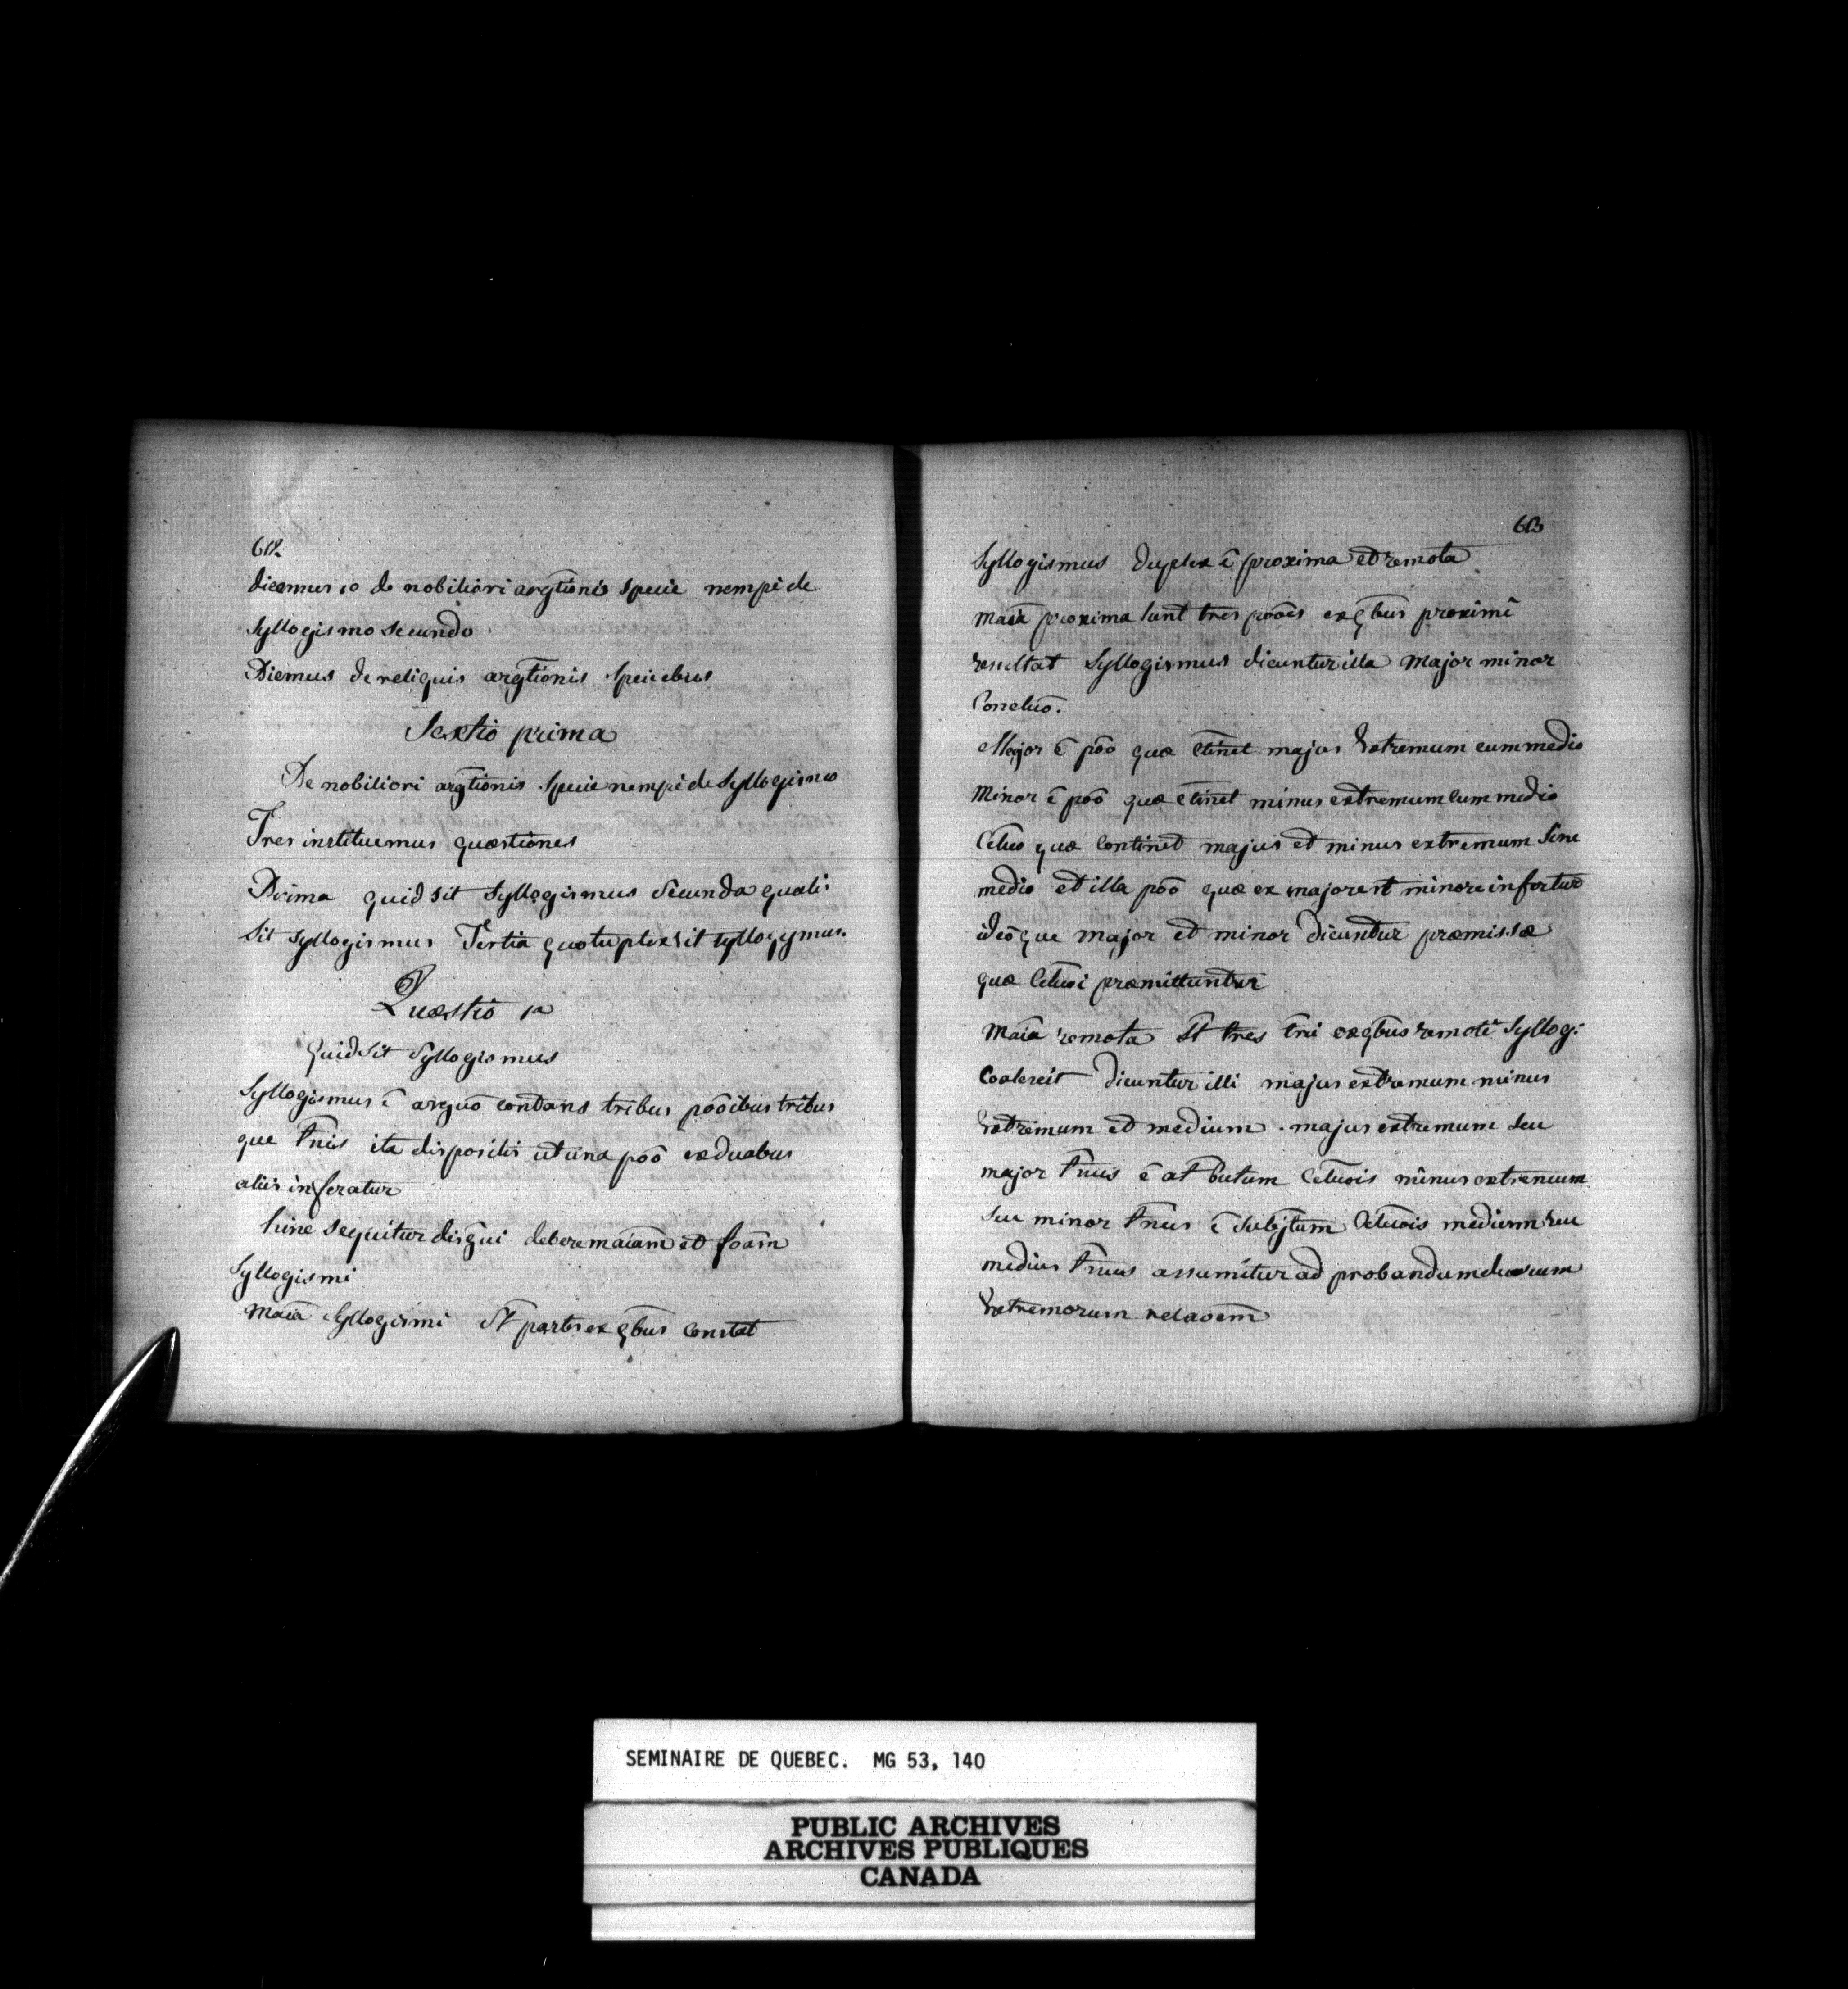 612
dicemus 1o de nobiliori argtīonis specie nempè de
syllogismo secundo
Diemus de reliquis argtīonis speciebus
Sectio prima
De nobiliori argtīonis specie nempè de syllogismo
Tres instituemus quæstiones
Prima quid sit syllogismus secunda qualis
sit syllogismus Tertia quotuplex sit syllogymus.
Quæstio 1a
Quid sit syllogismus
Syllogismus ē arguō contans tribus poōibus tribus
que t̄nis ita dispositis ut una poō ex duabus
aliis inferatur
hinc sequitur disḡui debere maīam et foām
syllogismi
maīa syllogismi st̄ partes ex qb̄us constat
613
syllogismus duplex ē proxima et remota
maīa proxima sunt tres poōēs ex qb̄us proximè
resultat syllogismus dicuntur illa major minor
Concluō.
Major ē poō quæ c̄tinet majus extremum cum medio
Minor ē poō quæ c̄tinet minus extremum cum medio
Cc̄luo quæ continet majus et minus extremum sine
medio et illa poō quæ ex majore et minore infertur
ideōque major et minor dicuntur præmissæ
quæ Cc̄luōi præmittuntur
Maīa remota st̄ tres t̄ni ex qb̄us remotè syllog:
coalescit dicuntur illi majus extremum minus
extremum et medium. majus extremum seu
major t̄nus ē at̄butum Cc̄luōis minus extremum
seu minor t̄nus ē subj̄tum Cc̄luōis medium seu
medius t̄nus assumitur ad probandum duorum
extremorum relaōēm
SEMINAIRE DE QUEBEC. MG 53, 140
PUBLIC ARCHIVES
ARCHIVES PUBLIQUES
CANADA